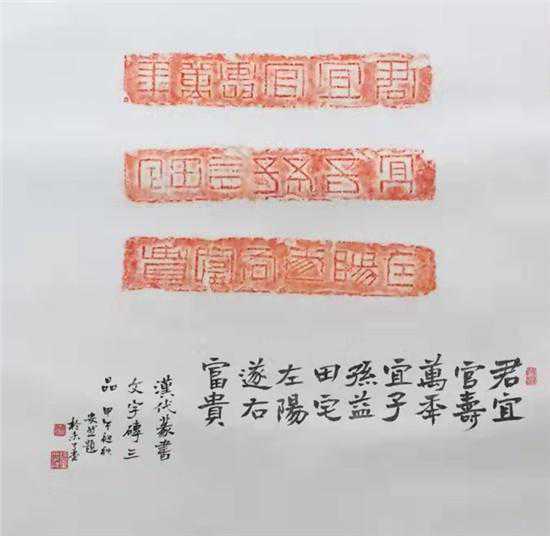 君宜官壽萬年
宜子孫益田宅
左陽遂右富貴
君宜
官壽
萬年
宜子
孫益
田宅
左陽
遂右
富貴
漢代篆書
文字磚三
品 甲午初秋
題
於京